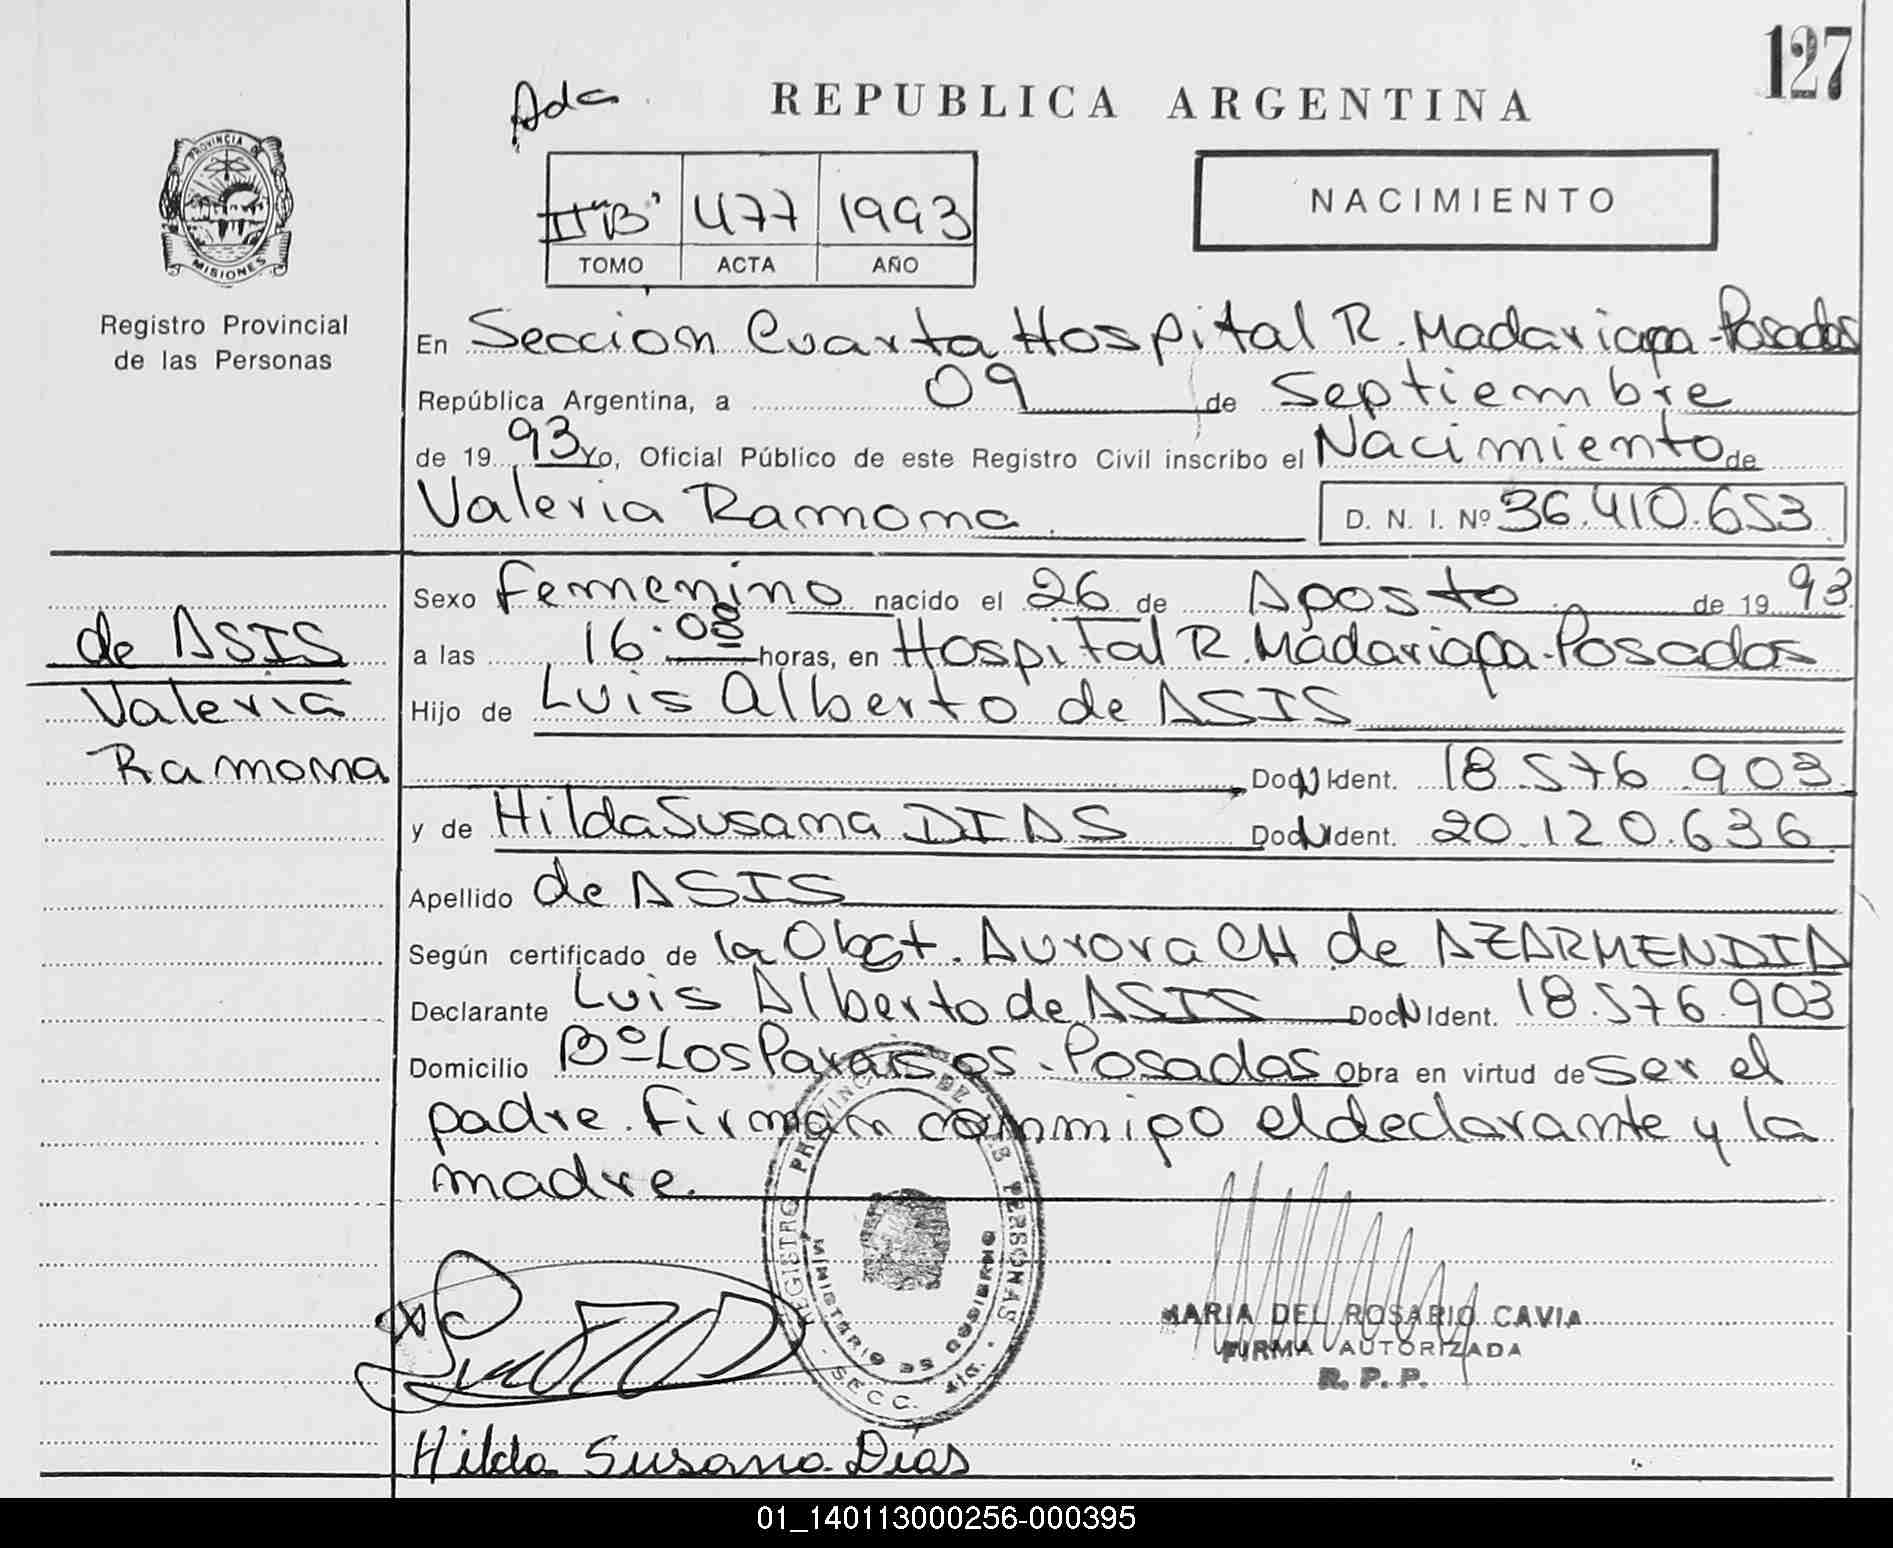 127
Ada
REPUBLICA ARGENTINA
PROVINCIA DE
MISIONES
Registro Provincial
de las Personas
II "B" 477 1993
TOMO ACTA AÑO
NACIMIENTO
En Seccion Cuarta Hospital R. Madariaga - Posadas
República Argentina, a 09 de Septiembre
de 19 93 Yo, Oficial Público de este Registro Civil inscribo el Nacimiento de
Valeria Ramona D. N. I. Nº 36.410.653
de ASIS
Valeria
Ramona
Sexo Femenino nacido el 26 de Agosto de 19 93
a las 16:08 horas, en Hospital R. Madariaga - Posadas
Hijo de Luis Alberto de ASIS
Doc N Ident. 18.576.903
y de Hilda Susana DIAS Doc N Ident. 20.120.636
Apellido de ASIS
Según certificado de la Obst. Aurora CH de AZARMENDIA
Declarante Luis Alberto de ASIS Doc N Ident. 18.576.903
Domicilio Bº Los Paraisos - Posadas Obra en virtud de ser el
padre. Firman conmigo el declarante y la
madre.
REGISTRO PROVINCIAL DE LAS PERSONAS
MINISTERIO DE GOBIERNO
SECC. 4ta.
MARIA DEL ROSARIO CAVIA
FIRMA AUTORIZADA
R. P. P.
Hilda Susana Dias
01_140113000256-000395